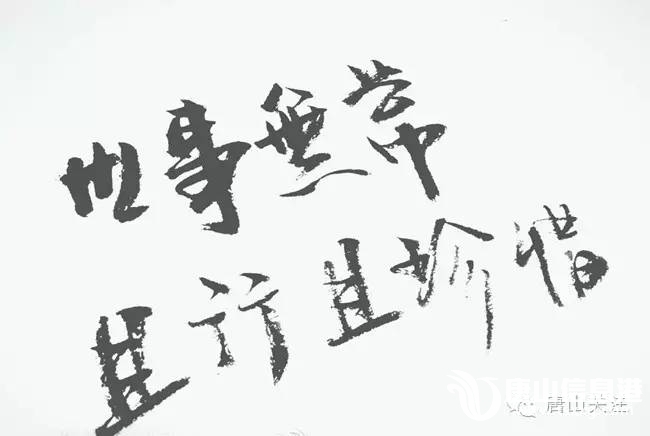 世事無常
且行且珍惜
唐山信息港
唐山关注